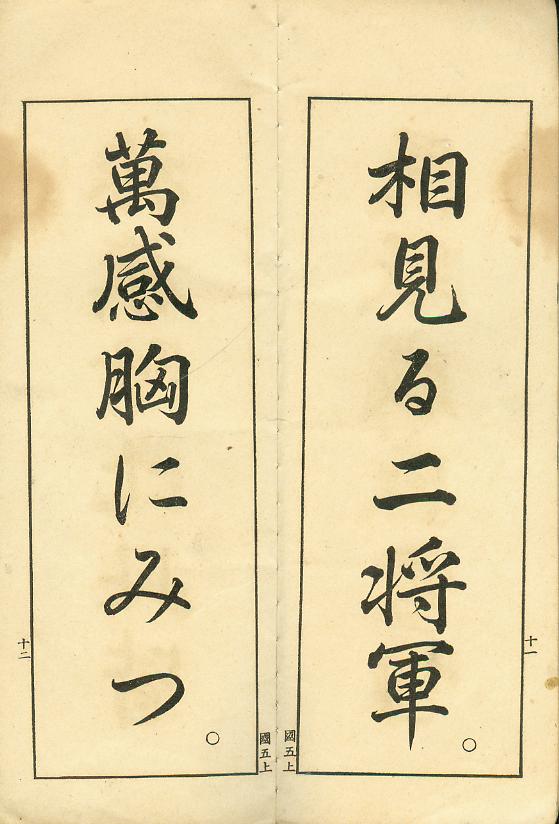 相見る二将軍
○
十一
國五上
萬感胸にみつ
○
十二
國五上